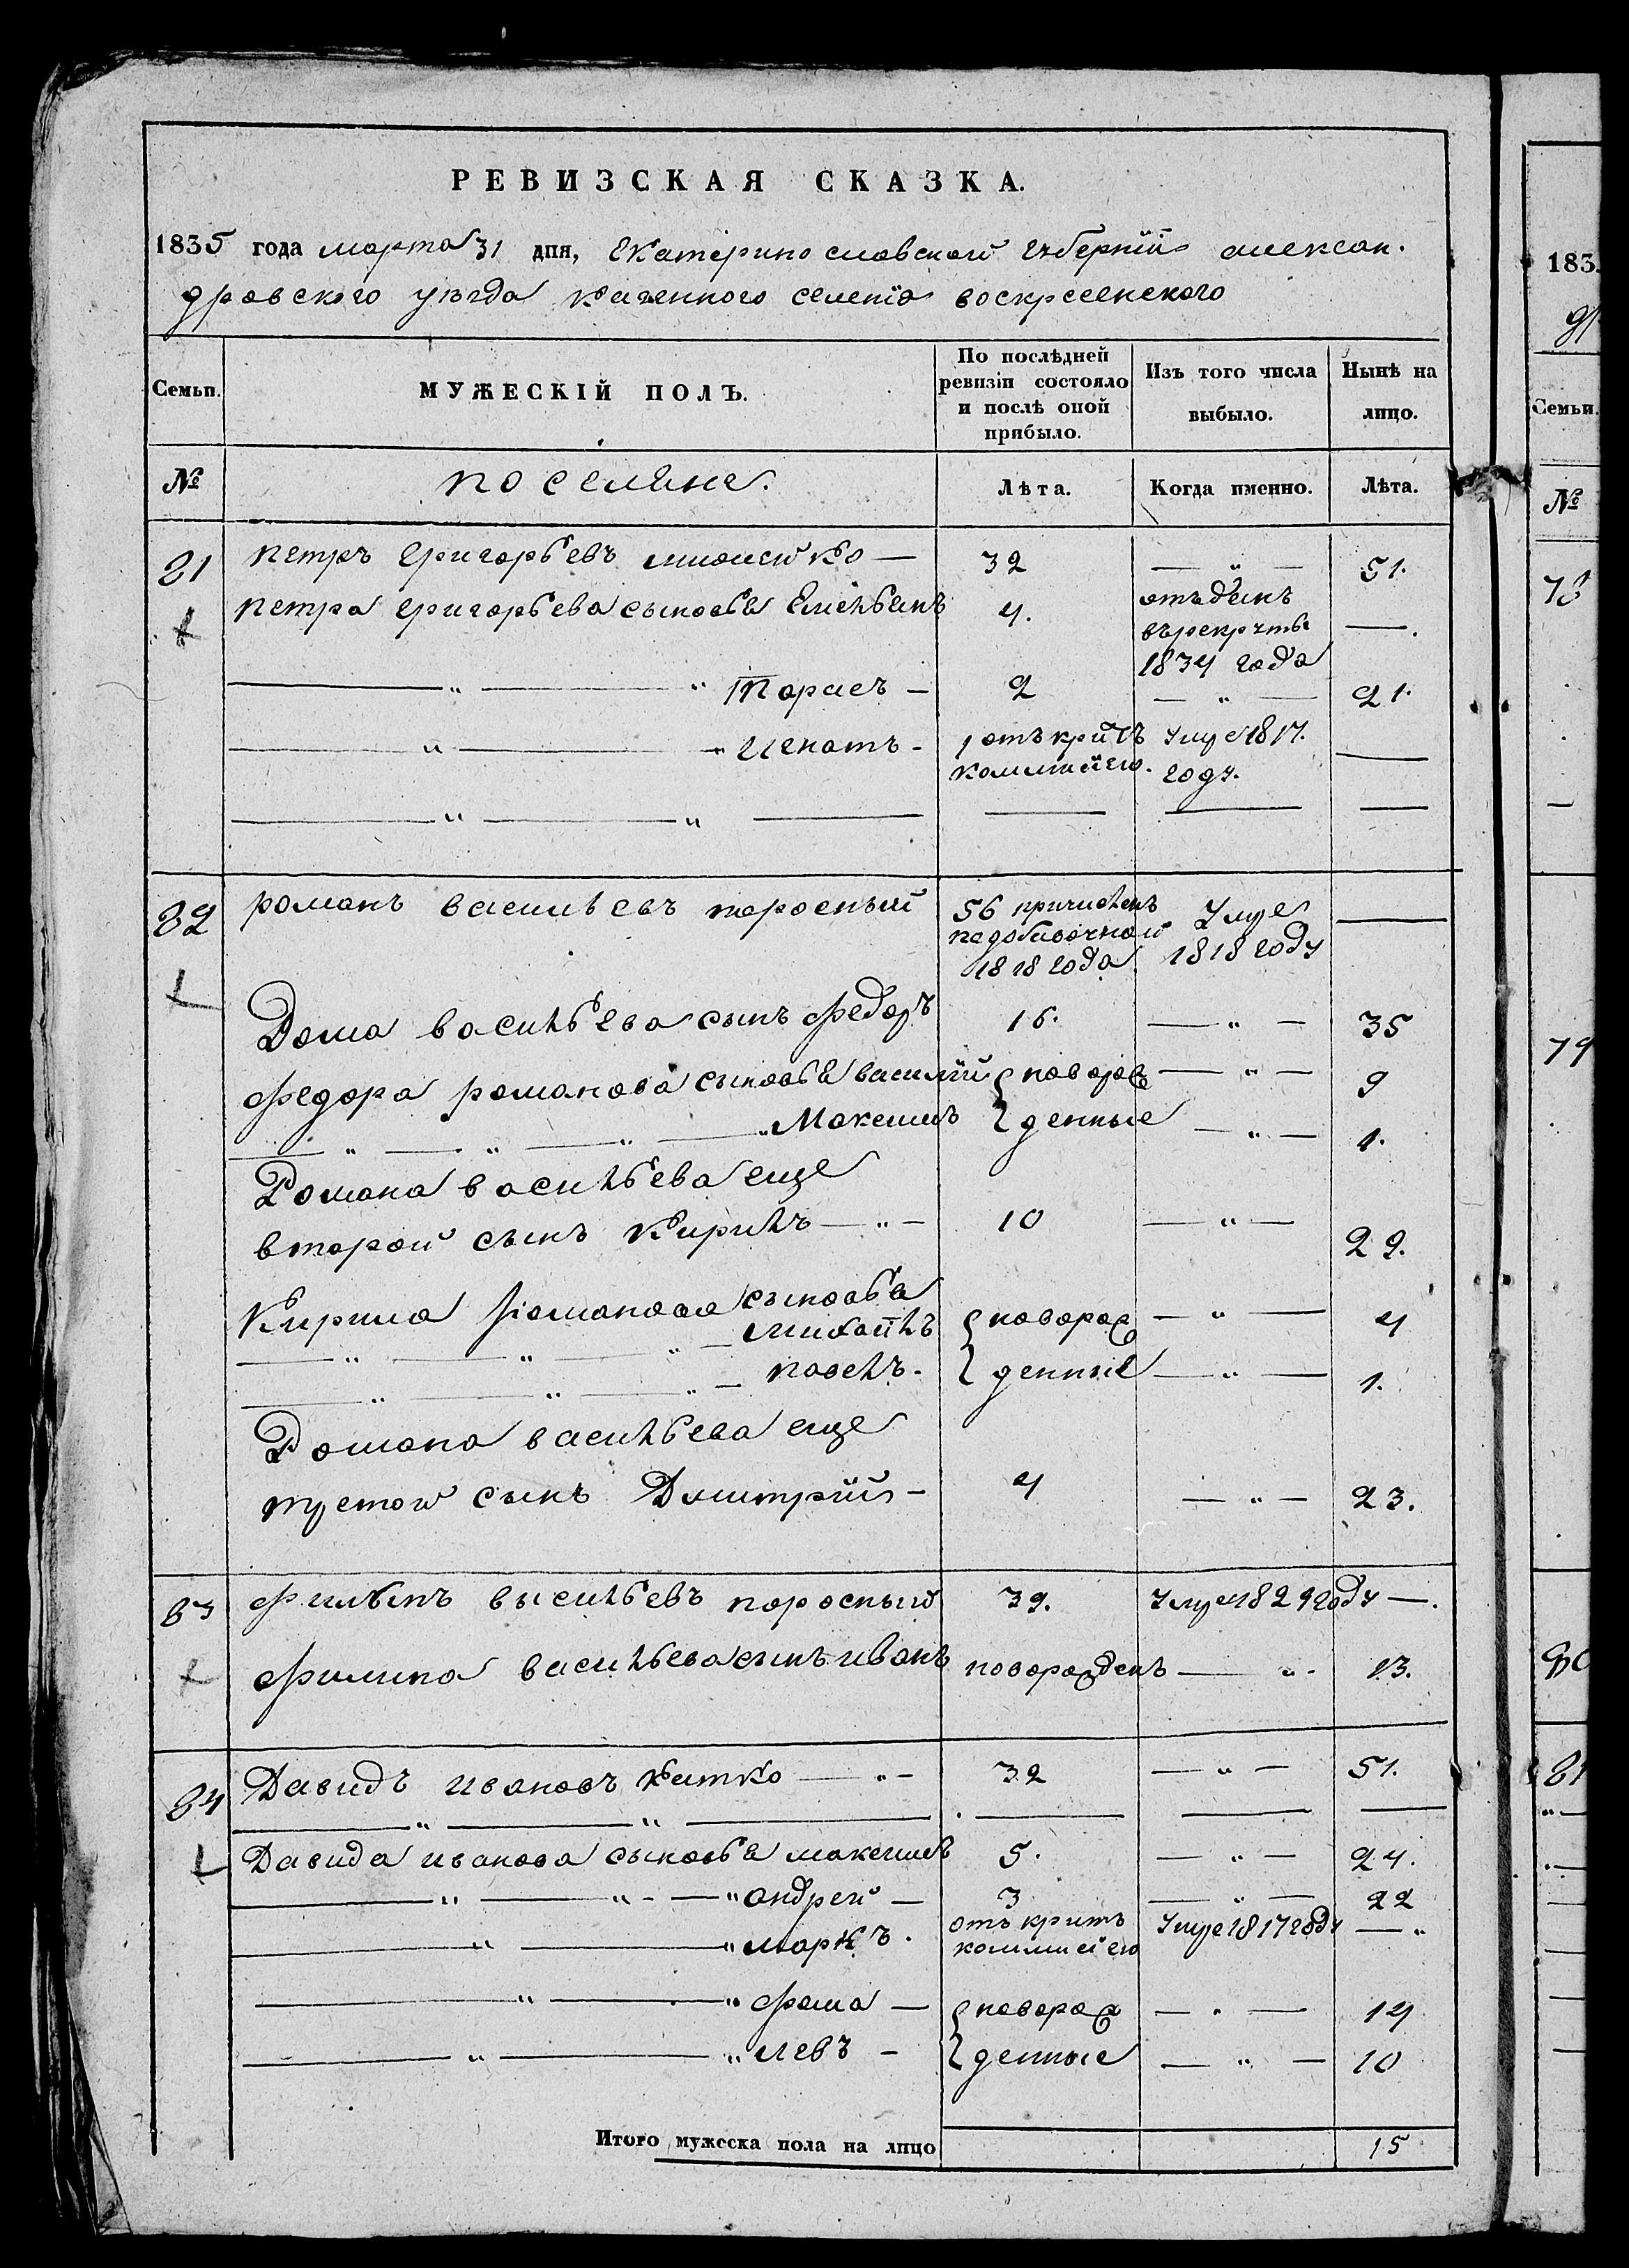 РЕВИЗСКАЯ СКАЗКА.
1835 года марта 31 дня, Екатерино славской губерніи алексан.
дровского уѣзда казенного селенія воскресенского
Семьи.
МУЖЕСКІЙ ПОЛЪ.
По послѣдней ревизіи состояло и послѣ оной прибыло.
Изъ того числа выбыло.
Нынѣ на лицо.
№ поселяне. Лѣта. Когда именно. Лѣта.
81 петръ григорьевъ — 32 — „ — 51.
петра григорьева сыновья Емельянъ 4. отъданъ
въ рекруты —.
1834 года
— „ — „ Тарасъ — 2 — „ — 21.
— „ — „ Игнатъ - 1 отъкритъ Умре 1817. —
коммисією. году.
— „ — „ — — — —
82 романъ васильевъ 56 причисленъ Умре —
1818 года 1818 году
васильева сынъ федоръ 16. — „ — 35
федора романова сыновья василій новорож — „ — 9
— „ — „ — „ — „ Максимъ денные — „ — 1.
Романа васильева еще
второй сынъ Кирилъ — „ — 10 — „ — 29.
Кирила романова сыновья
— „ — „ — „ — михаилъ новорож — „ — 4
— „ — „ — „ — павелъ. денные — „ — 1.
Романа васильева еще
третой сынъ Дмитрий — 4 — „ — 23.
83 Филипъ васильевъ 39. Умре 1829 году —.
филипа васильева сынъ иванъ новорожденъ — „ - 13.
84 Давидъ ивановъ Китко — „ — 32 — „ — 51.
— „ — „ — . — — —
Давида иванова сыновья максимъ 5. — „ — 24.
— „ — „ - — „ андрей — 3 — „ — 22
— „ — „ маркъ. отъ критъ Умре 1817 году — „
коммисією
— „ — „ фома — новорож — „ — 14
— „ — „ левъ — денные — „ — 10
Итого мужеска пола на лицо 15
183
др
Семьи.
№
78
79
80
81